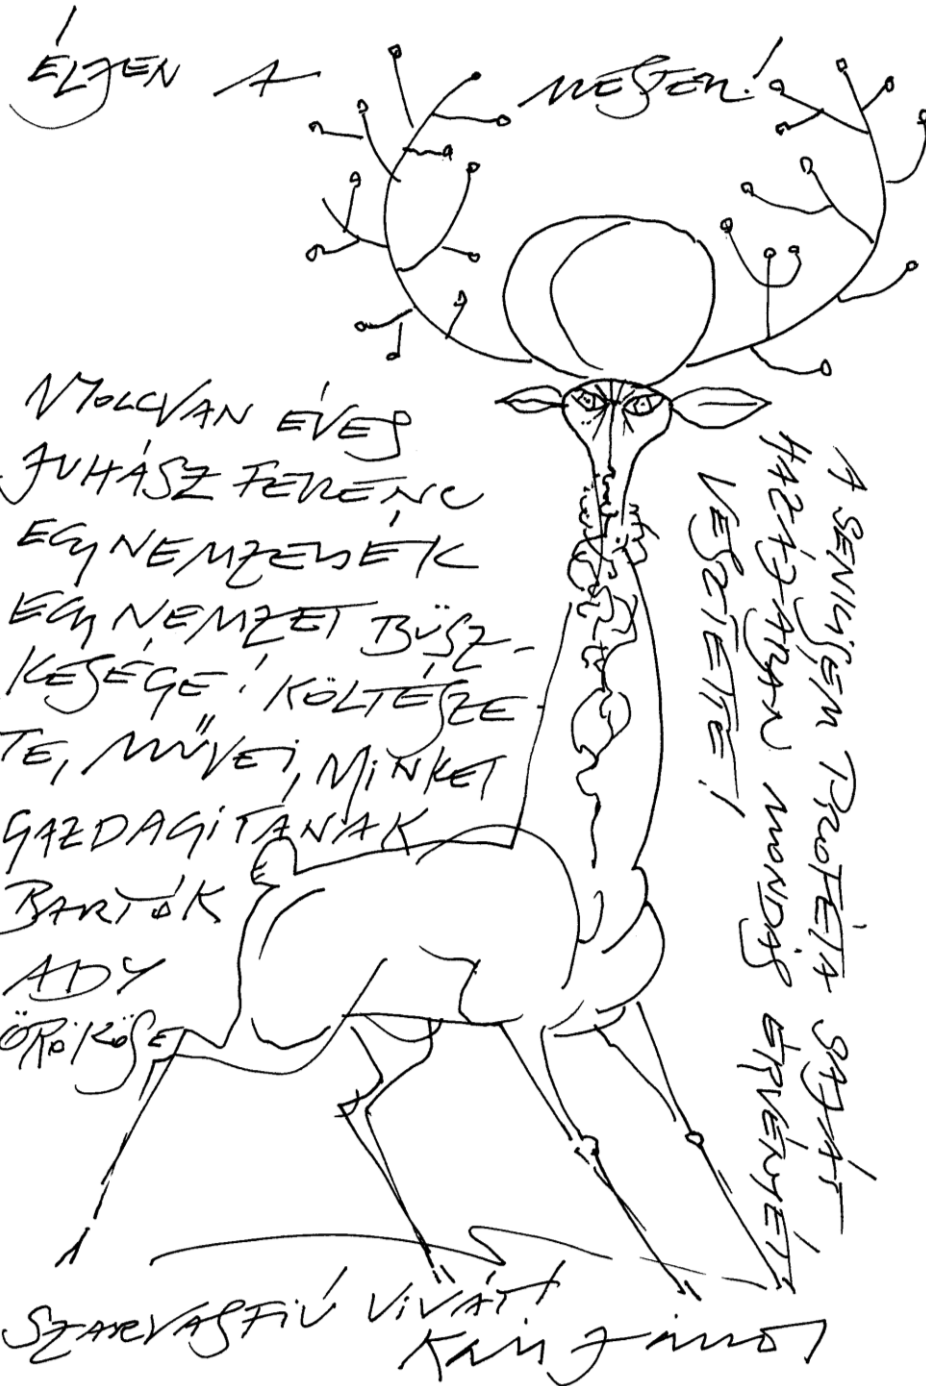 ÉLJEN A MESTER!
NYOLCVAN ÉVES
JUHÁSZ FERENC
EGY NEMZEDÉK
EGY NEMZET BÜSZ-
KESÉGE! KÖLTÉSZE-
TE, MŰVEI, MINKET
GAZDAGÍTANAK
BARTÓK
ADY
ÖRÖKÖSE
A SENKISEM PRÓFÉTA SAJÁT
HAZÁJÁBAN MONDÁS ÉRVÉNYÉT
VESZTETTE!
SZARVASFIÚ VIVÁT!
Kass János